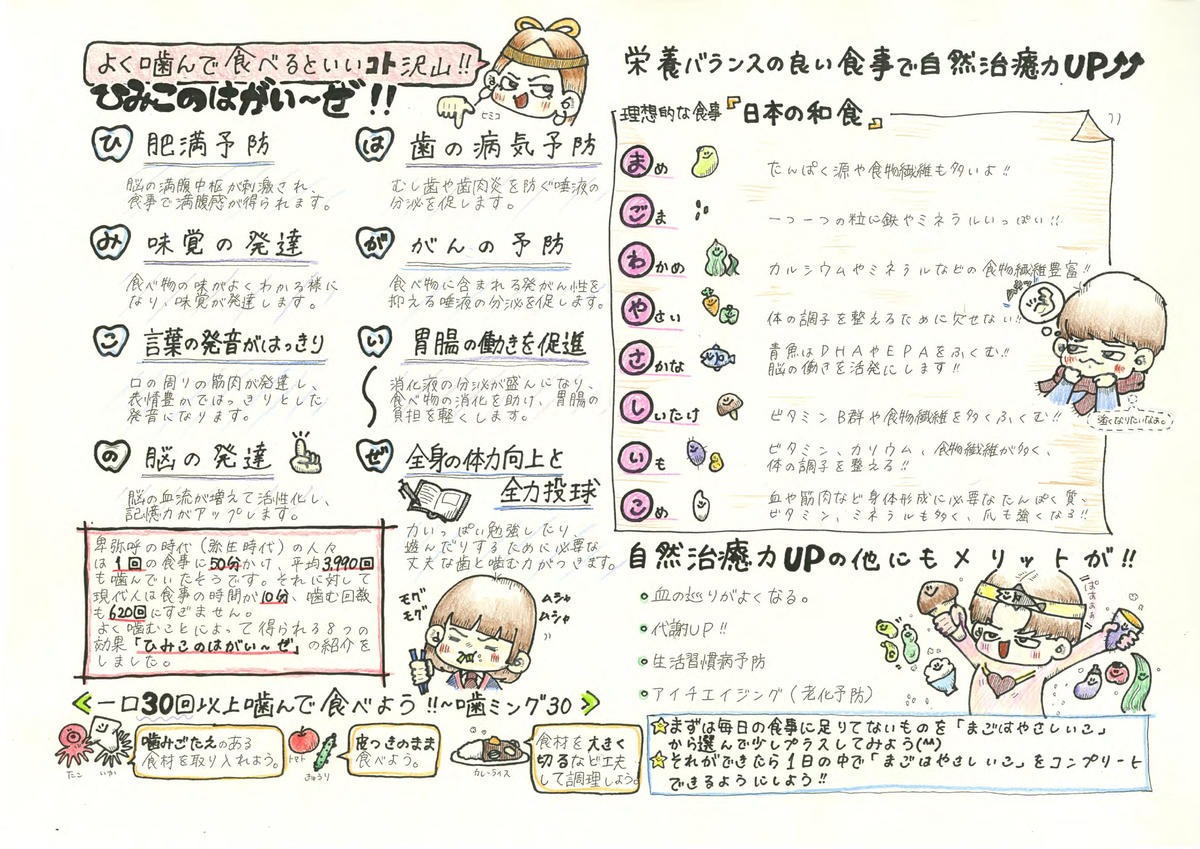 よく噛んで食べるといいコト沢山!!
ひみこのはがい〜ぜ!!
ヒミコ
ひ 肥満予防
脳の満腹中枢が刺激され、
食事で満腹感が得られます。
み 味覚の発達
食べ物の味がよくわかる様に
なり、味覚が発達します。
こ 言葉の発音がはっきり
口の周りの筋肉が発達し、
表情豊かではっきりとした
発音になります。
の 脳の発達
脳の血流が増えて活性化し、
記憶力がアップします。
は 歯の病気予防
むし歯や歯肉炎を防ぐ唾液の
分泌を促します。
が がんの予防
食べ物に含まれる発がん性を
抑える唾液の分泌を促します。
い 胃腸の働きを促進
消化液の分泌が盛んになり、
食べ物の消化を助け、胃腸の
負担を軽くします。
ぜ 全身の体力向上と
全力投球
力いっぱい勉強したり、
遊んだりするために必要な
丈夫な歯と噛む力がつきます。
卑弥呼の時代(弥生時代)の人々
は1回の食事に50分かけ、平均3,990回
も噛んでいたそうです。それに対して
現代人は食事の時間が10分、噛む回数
も620回にすぎません。
よく噛むことによって得られる8つの
効果「ひみこのはがい〜ぜ」の紹介を
しました。
モグ
モグ
ムシャ
ムシャ
一口30回以上噛んで食べよう!!~噛ミング30
たこ
いか
噛みごたえのある
食材を取り入れよう。
トマト
きゅうり
皮つきのまま
食べよう。
カレーライス
食材を大きく
切るなど工夫
して調理しよう。
栄養バランスの良い食事で自然治癒力UP⤴⤴
理想的な食事『日本の和食』
まめ たんぱく源や食物繊維も多いよ!!
ごま 一つ一つの粒に鉄やミネラルいっぱい!!
わかめ カルシウムやミネラルなどの食物繊維豊富!!
やさい 体の調子を整えるために欠せない!!
さかな 青魚はDHAやEPAをふくむ!!
脳の働きを活発にします!!
しいたけ ビタミンB群や食物繊維を多くふくむ!!
いも ビタミン、カリウム、食物繊維が多く、
体の調子を整える!!
こめ 血や筋肉など身体形成に必要なたんぱく質、
ビタミン、ミネラルも多く、爪も強くなる!!
強くなりたいなぁ。
自然治癒力UPの他にもメリットが!!
血の巡りがよくなる。
代謝UP!!
生活習慣病予防
アイチエイジング(老化予防)
ぱぁぁぁ
☆まずは毎日の食事に足りてないものを「まごはやさしいこ」
から選んで少しプラスしてみよう(^^)
☆それができたら1日の中で「まごはやさしいこ」をコンプリート
できるようにしよう!!